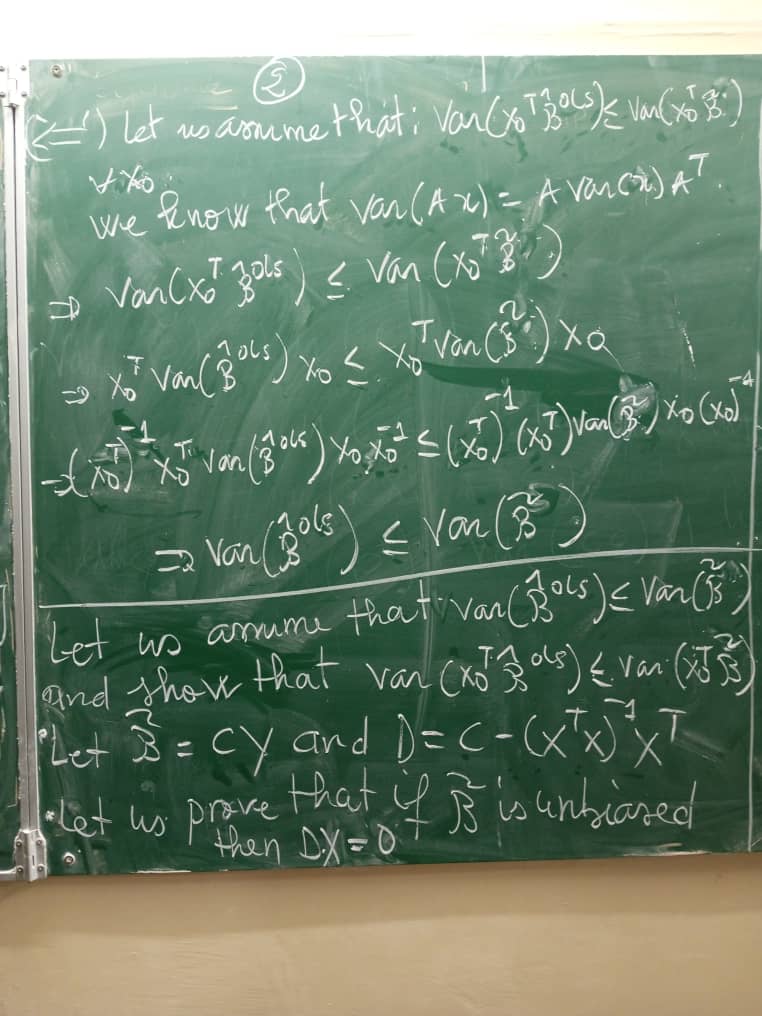 ②
(⇐) Let us assume that: Var(x₀ᵀ β̂ᵒˡˢ) ≤ Var(x₀ᵀ β̃)
∀ x₀
we know that Var(Ax) = A Var(x) Aᵀ.
⇒ Var(x₀ᵀ β̂ᵒˡˢ) ≤ Var(x₀ᵀ β̃)
⇒ x₀ᵀ Var(β̂ᵒˡˢ) x₀ ≤ x₀ᵀ Var(β̃) x₀
→ (x₀ᵀ)⁻¹ x₀ᵀ Var(β̂ᵒˡˢ) x₀ x₀⁻¹ ≤ (x₀ᵀ)⁻¹ (x₀ᵀ) Var(β̃) x₀ (x₀)⁻¹
⇒ Var(β̂ᵒˡˢ) ≤ Var(β̃)
Let us assume that Var(β̂ᵒˡˢ) ≤ Var(β̃)
and show that Var(x₀ᵀ β̂ᵒˡˢ) ≤ Var(x₀ᵀ β̃)
* Let β̃ = CY and D = C - (XᵀX)⁻¹Xᵀ
* Let us prove that if β̃ is unbiased
then DX = 0